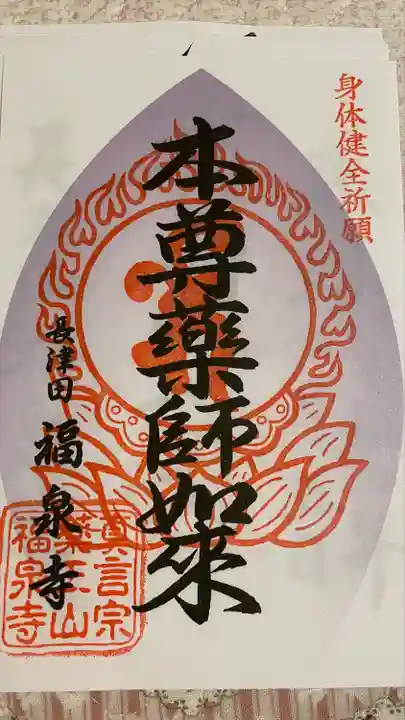 身体健全祈願
本尊藥師如來
長津田
福泉寺
真言宗
薬王山
福泉寺